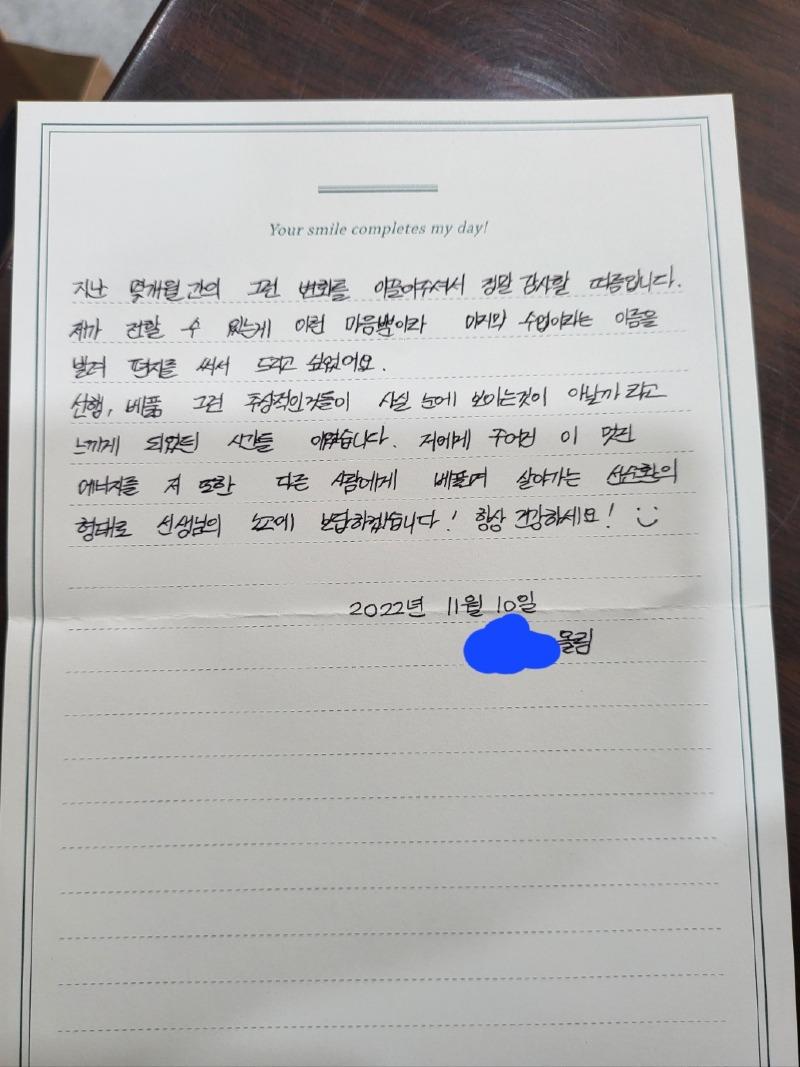 Your smile completes my day!
지난 몇개월간의 그런 변화를 이끌어주셔서 정말 감사할 따름입니다.
제가 전할 수 있는게 이런 마음뿐이라 마지막 수업이라는 이름을
빌려 편지를 써서 드리고 싶었어요.
선행, 베품 그런 추상적인것들이 사실 눈에 보이는것이 아닐까 라고
느끼게 되었던 시간들 이었습니다. 저에게 주어진 이 멋진
에너지를 저 또한 다른 사람에게 베풀며 살아가는 선순환의
형태로 선생님의 노고에 보답하겠습니다! 항상 건강하세요!
2022년 11월 10일
올림